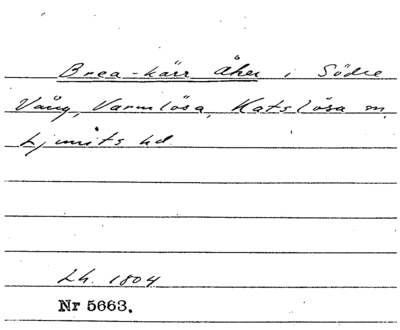 Brea-kärr åker i Södre
Vång, Varmlösa, Katslösa sn,
Ljunits hd.
Lh. 1804
Nr 5663.